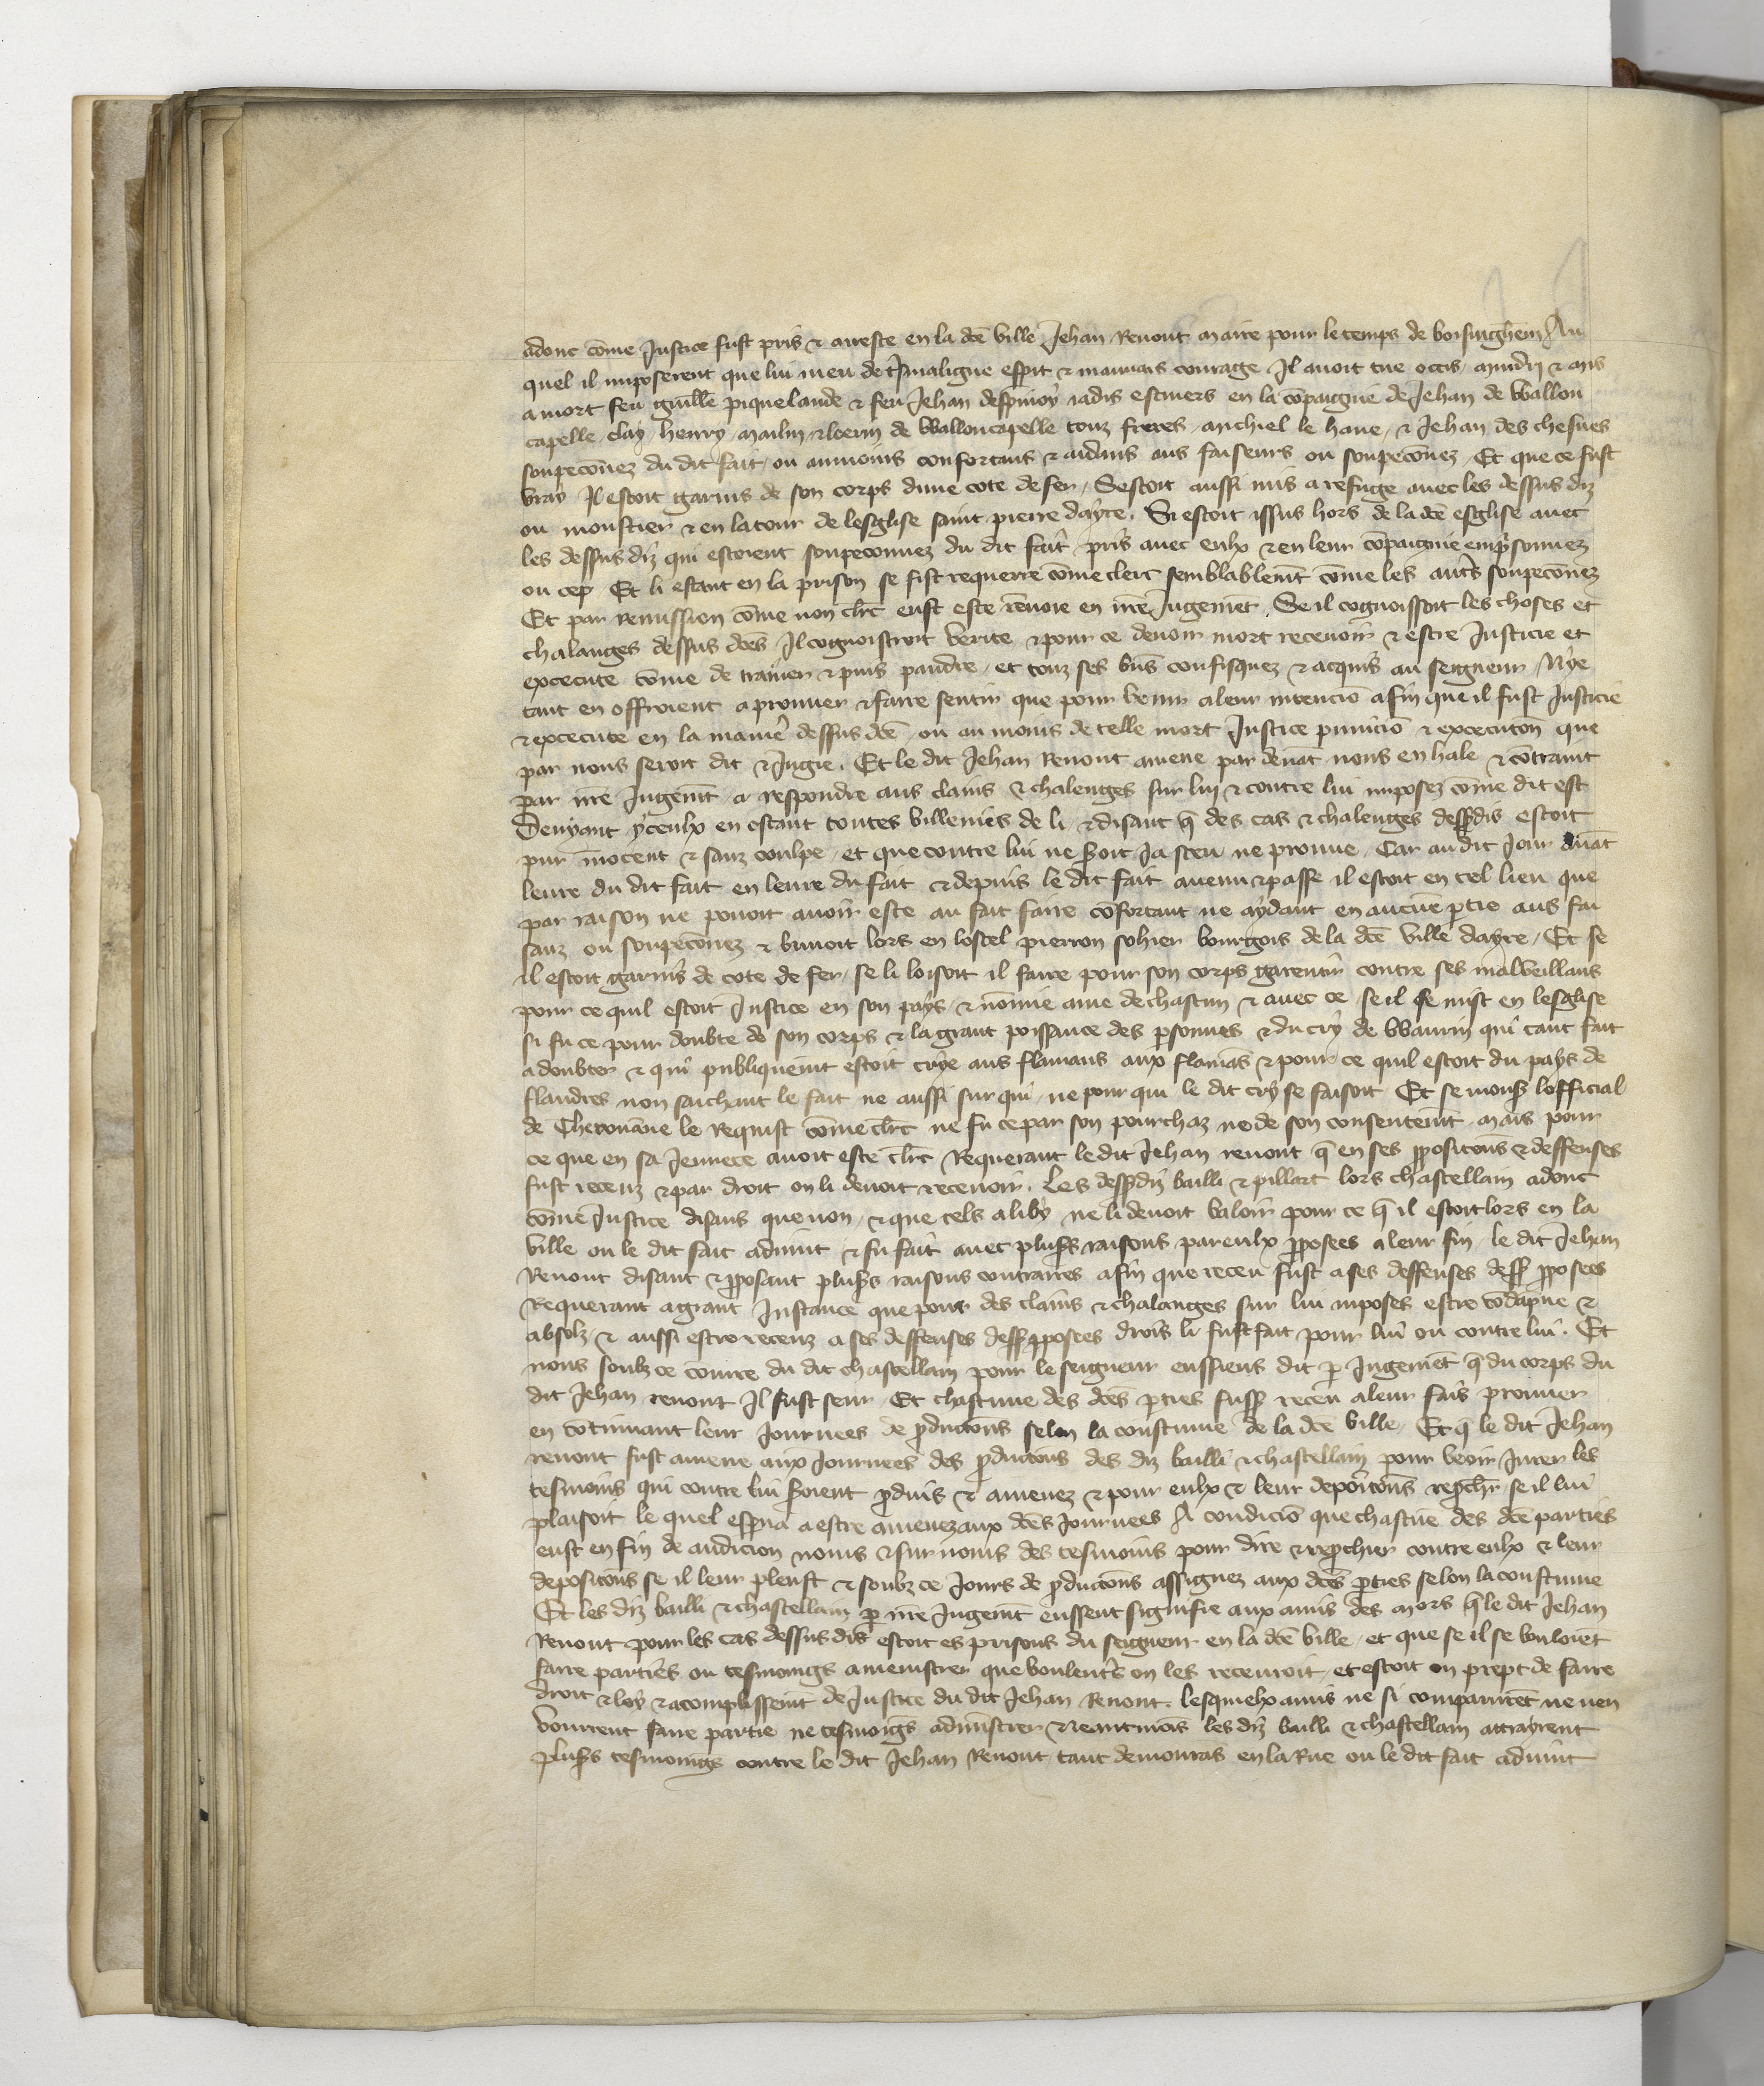 adonc cōme Justice fust pris & arreste en la dcē ville Jehan Renout maire pour le temps de boisinghem Au
quel il imposerent que lui meu de Jnmaligne esprit & mauvais courage Il avoit tue occis, & mis
a mort feu guillē piquelande & feu Jehan despinoy iadis escuiers en la cōpaignie de Jehan de Wallon
capelle clay henry mailin & loerin de Walloncapelle touz freres, michiel le haue, & Jehan des chesnes
soupecōnez du dit fait, ou au moins confortans & aidans aus faiseurs ou soupecōnez, Et que ce fust
vray Il estoit garnis de son corps dune cote de fer, Sestoit aussi mis a refuge avec les dessus diz
ou moustier & en la tour de lesglise saint pierre dayre. Si estoit issus hors de la dcē esglise avec
les dessus diz qui estoient soupeconnez du dit fait pris avec eulx & en leur cōpaignie emprisonnez
ou cep Et li estant en la prison se fist requerre cōme clerc semblablemt cōme les autrs soupecōnez
Et par remission cōme non clerc eust este renvoie en nrē Jugemēt, Se il cognoissoit les choses et
chalanges dessus dcēs Il cognoistroit verite & pour ce devoir mort recevoir & estre Justicie et
excecute cōme de trainer & puis pandre, et touz ses biēs confisquez & acquis au seigneur, Nye
tant en offroient a prouver & faire sentir que pour venir a leur intenciō afin que il fust Justicie
& excecute en la maniē dessus dcē, ou au moins de telle mort Justice puniciō & excecutōn que
par nous seroit dit & Jugie. Et le dit Jehan Renout amene par devāt nous en hale & cōtraint
par nrē Jugemt a respondre aus clains & chalenges sur lui & contre lui imposez cōme dit est
Denyant yceulx en ostant toutes villenies de li & disant q̄ des cas & chalenges dessusdis estoit
pur innocent & sanz coulpe, et que contre lui ne seroit ja sceu ne prouve, Car au dit jour avāt
leure du dit fait en leure du fait & depuis le dit fait avenu & passe il estoit en tel lieu que
par raison ne povoit avoir este au fait faire cōfortant ne aydant en aucune ptie aus fai
sanz ou soupecōnez & buvoit lors en lostel pierron sohier bourgois de la dcē ville dayre, Et se
il estoit garnis de cote de fer, se li loisoit il faire pour son corps garentir contre ses malveillans
pour ce quil estoit Justice en son pays, & nōmie ame de chascun & avec ce se il se mist en lesglise
si fu ce pour doubte de son corps & la grant poissance des psonnes & du cry de Wavrin qui tant fait
a doubter & qui publiquemt estoit crye aus flamans aux flamās & pour ce quil estoit du pays de
flandres non saichant le fait ne aussi sur qui, ne pour qui le dit cry se faisoit Et se mons lofficial
de Therouāne le requist cōme clerc ne fu ce par son pourchaz ne de son consentemt mais pour
ce que en sa Jeunece avoit este clerc Requerant le dit Jehan renout q̄ en ses ppositōns & deffenses
fust receuz & par droit on li devoit recevoir. Les dessdiz bailli & pillart lors chastellain adonc
cōme Justice disans que non, & que tels aliby ne li devoit valoir pour ce q̄ il estoit lors en la
ville ou le dit fait advint & fu fait avec plusrs raisons par eulx pposees a leur fin le dit Jehan
Renout disant & pposant plusrs raisons contraires afin que receu fust a ses deffenses dess pposees
Requerant a grant Jnstance que pour des clains & chalanges sur lui inposes estre cōdāpne &
absolz, & aussi estre receuz a ses deffenses dess pposees drois li fust fait pour lui ou contre lui. Et
nous soubz ce conjure du dit chastellain pour le seigneur eussiens dit p Jugemēt q̄ du corps du
dit Jehan renout Il fust seur Et chascune des dcēs pties fuss receu a leur fais prouver
en cōtinuant leur Journees de pductōns selon la coustume de la dcē ville, Et q̄ le dit Jehan
renout fust amene aux Journees des pductōns des diz bailli & chastellain pour veoir Jurer les
tesmoins qui contre lui seroient pduis & amenez & pour eulx & leur depōitōns repchr se il lui
plaisoit le quel a estre amenez aux dcēs Journees A condiciō que chascūe des dcēs parties
eust en fin de audicion noms & surnoms des tesmoins pour dire & repchier contre eulx & leur
depositōns se il leur pleust & soubz ce Jours de pductōns assignez aux dcēs pties selon la coustume
Et les diz bailli & chastellain p nrē Jugemt eussent signifie aux amis des mors q̄ le dit Jehan
Renout pour les cas dessus dis estoit es prisons du seigneur en la dcē ville, et que se il se vouloiēt
faire parties ou tesmoings amenistrer que voulentrs on les recevroit, et estoit on prept de faire
droit & loy & acomplissemt de Justice du dit Jehan Renout. lesquielx amis ne si comparurēt ne nen
vourrent faire partie ne tesmoigs adminstrer & neantmōis les diz bailli & chastellain attrayrent
plusrs tesmoings contre le dit Jehan Renout, tant demourās en la Rue ou le dit fait advint